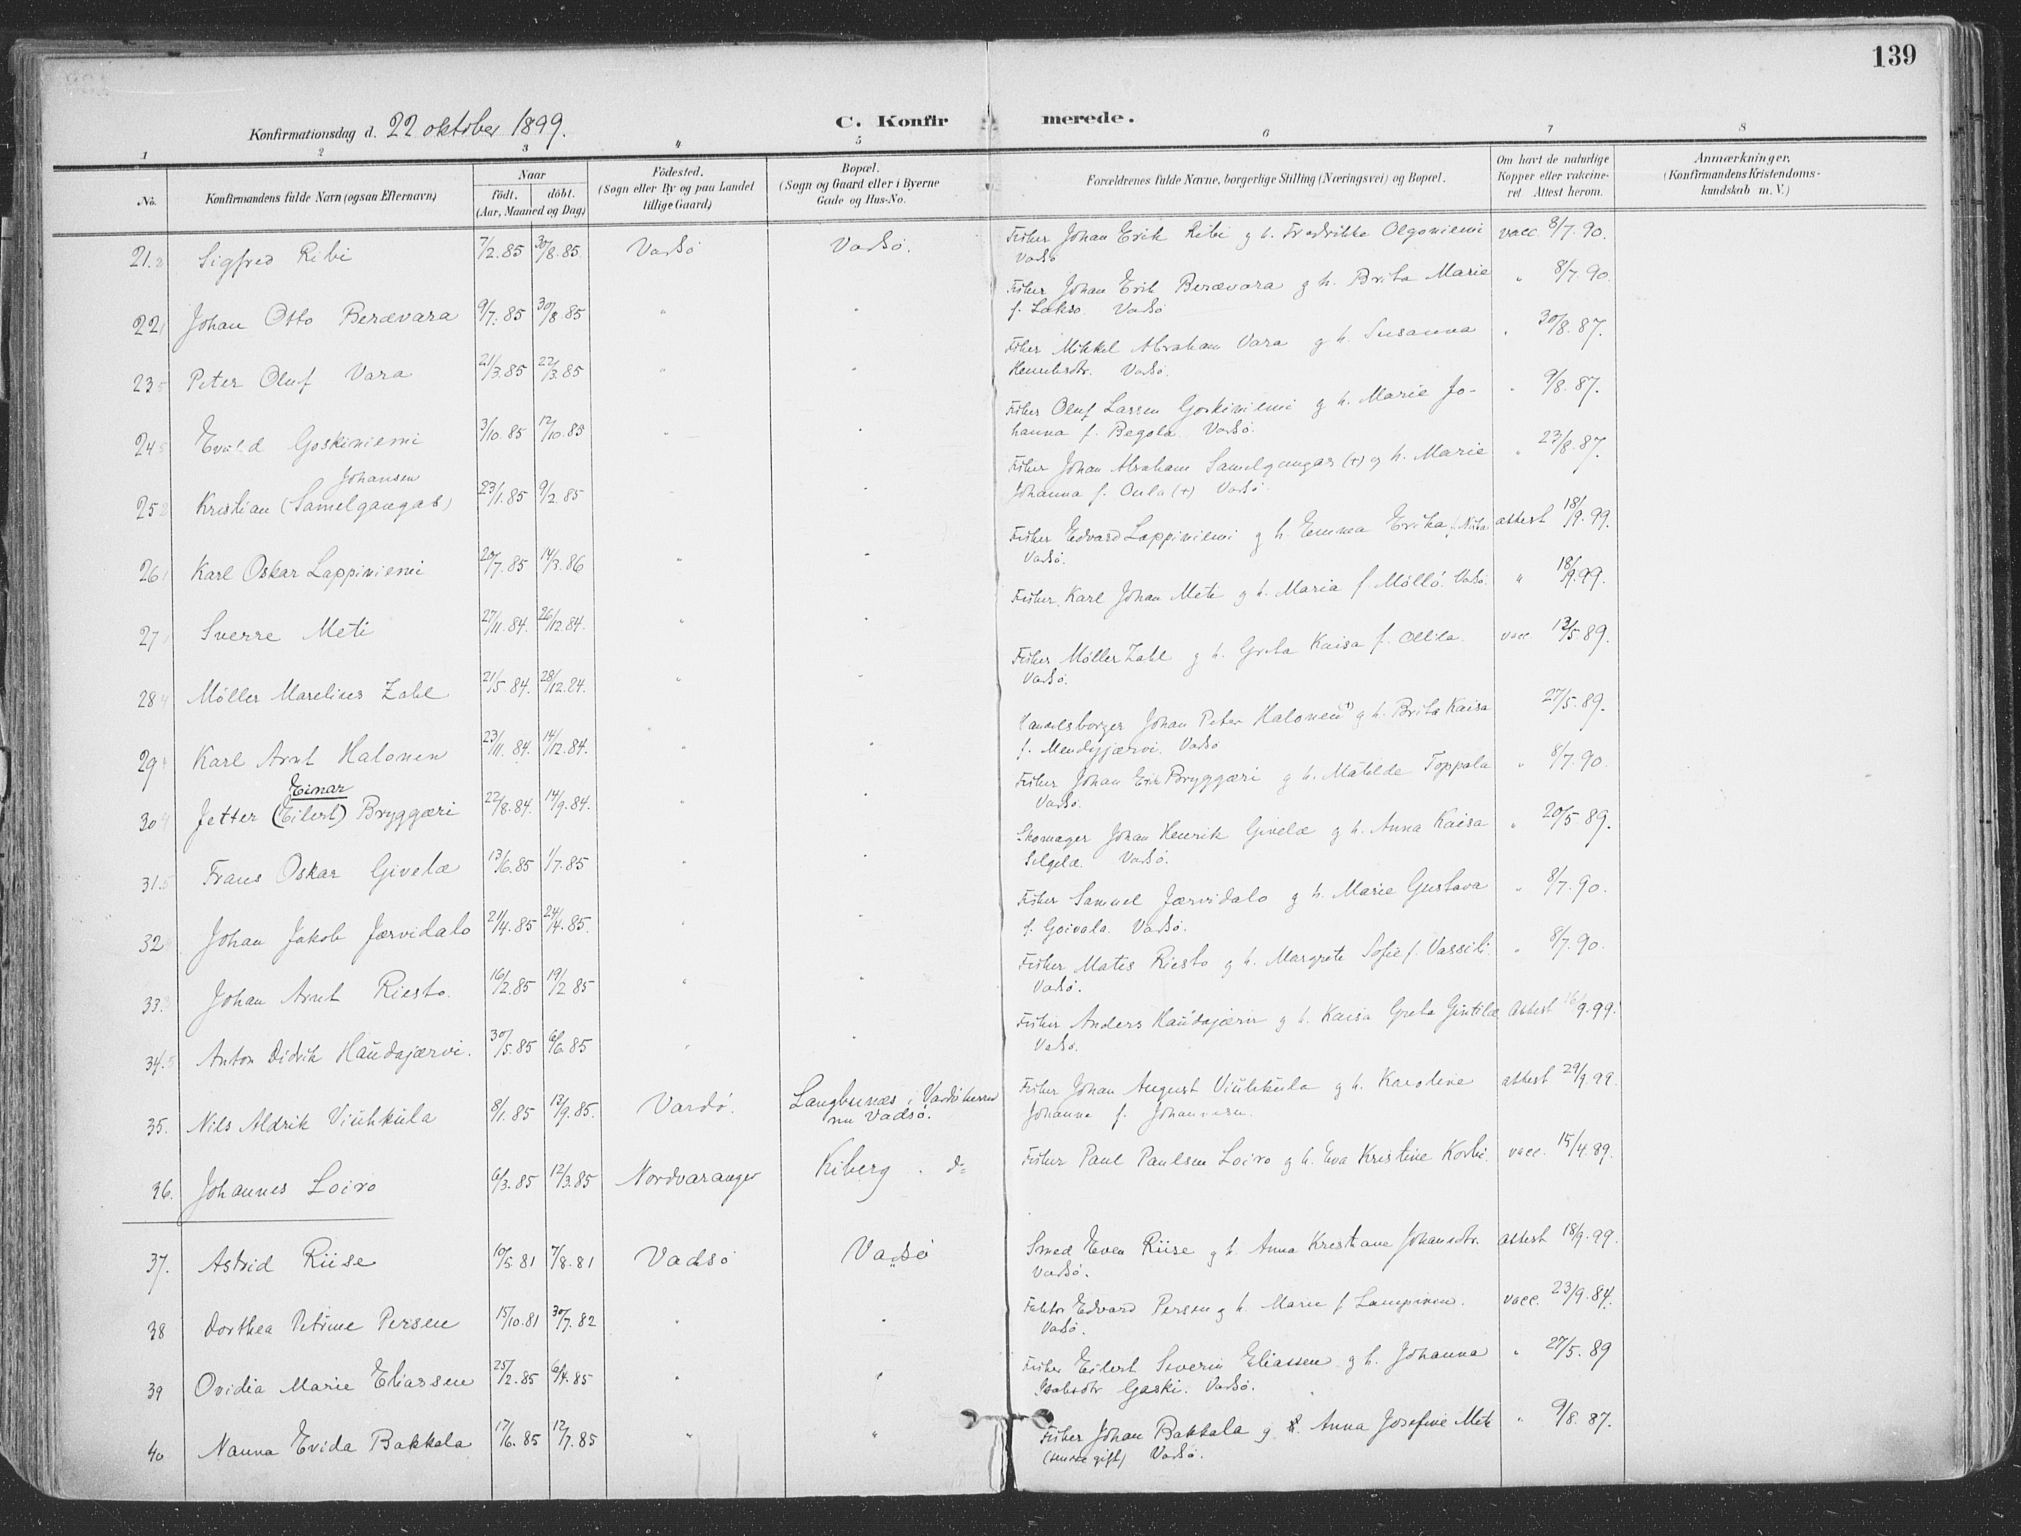 139
Konfirmationsdag d. 22 oktober 1899.
C. Konfirmerede.
1 2 3 4 5 6 7 8
No.
Konfirmandens fulde Navn (ogsaa Efternavn)
Naar
født. døbt.
(Aar, Maaned og Dag)
Födested.
(Sogn eller By og paa Landet
tillige Gaard)
Bopæl.
(Sogn og Gaard eller i Byerne
Gade og Hus-No.
Forældrenes fulde Navne, borgerlige Stilling (Næringsvei) og Bopæl.
Om havt de naturlige
Kopper eller vakcine-
ret. Attest herom.
Anmærkninger.
(Konfirmandens Kristendoms-
kundskab m. V.)
21. Sigfred Ribi 7/2.85 30/8.85. Vadsø Vadsø. Fisker Johan Erik Ribi g h. Fredrikke Olgoniemi vacc. 8/7.90.
Vadsø
22 Johan Otto Beravara 9/7.85 30/8.85 " " Fisker Johan Erik Beravara g h. Brita Marie " 8/7.90
f. Lakso Vadsø
23 Peter Oluf Vara 21/3.85 22/3.85 " " Fisker Mikkel Abraham Vara g h. Susanna " 30/8.87.
Henriksdtr. Vadsø.
24 Evald Goskiniemi 3/10.85 12/10.85 " " Fisker Oluf Larsen Goskiniemi g h. Marie Jo- " 9/8.87.
hanna f. Begola. Vadsø.
Johansen
25 Kristian (Samelgangas) 23/1.85 9/2.85 " " Fisker Johan Abraham Samelgangas (+) g h. Marie " 23/8.87.
Johanna f. Oula (+) Vadsø.
26 Karl Oskar Lappiniemi 20/7.85 14/3.86 " " Fisker Edvard Lappiniemi g h. Emma Erika f. Niska attest 18/9.99.
Vadsø.
27 Sverre Meti 27/11.84. 26/12.84. " " Fisker Karl Johan Mete g h. Maria f. Mølló. Vadsø. " 18/9.99.
28 Møller Marelius Zahl 21/5.84. 28/12.84. " " Fisker Møller Zahl g h. Greta Kaisa f. Ollila. vacc. 13/5.89.
Vadsø.
29 Karl Arnt Halonen 23/11.84. 14/12.84. " " Handelsborger Johan Peter Halonen g h. Brita Kaisa 27/5.89.
f. Mendyjærvi. Vadsø
Einar
30 Jetter (Eilert) Bryggæri 22/8.84. 14/9.84. " " Fisker Johan Erik Bryggæri g h. Matilde Toppala " 8/7.90.
Vadsø.
31. Frans Oskar Givelæ 13/6.85 1/7.85 " " Skomager Johan Henrik Givelæ g h. Anna Kaisa " 20/5.89.
Selgelæ. Vadsø.
32 Johan Jakob Jærvidalo 21/4.85 24/4.85. " " Fisker Samuel Jærvidalo g h. Marie Gustava " 8/7.90.
f. Goivala. Vadsø.
33. Johan Arnt Riesto. 16/2.85 19/2.85 " " Fisker Mates Riesto g h. Margrete Sofie f. Vassili. " 8/7.90.
Vadsø.
34. Anton Didrik Haudajærvi. 30/5.85 6/6.85 " " Fisker Anders Haudajærvi g h. Kaisa Greta Gintilæ attest 16/9.99.
Vadsø.
35. Nils Aldrik Viuhkula 8/1.85 13/9.85. Vardø. Langbunæs i Vardøherred Fisker Johan August Viuhkula g h. Karoline attest 29/9.99.
nu Vadsø. Johanna f. Johannesen.
36. Johannes Loiro 6/3.85 12/3.85 Nordvaranger Kiberg . do Fisker Paul Paulsen Loiro g h. Eva Kristine Korbi. vacc. 15/4.89.
37. Astrid Riise 10/5.81 7/8.81 Vadsø Vadsø Smed Even Riise g h. Anna Kristiane Johansdtr. attest 18/9.99.
Vadsø.
38 Dorthea Petrine Persen 15/10.81 30/7.82 " " Faktor Edvard Persen g h. Marie f. Lampinen. vacc. 23/9.84.
Vadsø.
39 Ovidia Marie Eliassen 25/2.85 6/4.85 " " Fisker Eilert Severin Eliassen g h. Johanna " 27/5.89
Isaksdtr Gaski. Vadsø.
40 Nanna Evida Bakkala 17/6.85 12/7.85 " " Fisker Johan Bakkala g Anna Josefine Mete " 9/8.87.
(senere gift) Vadsø.